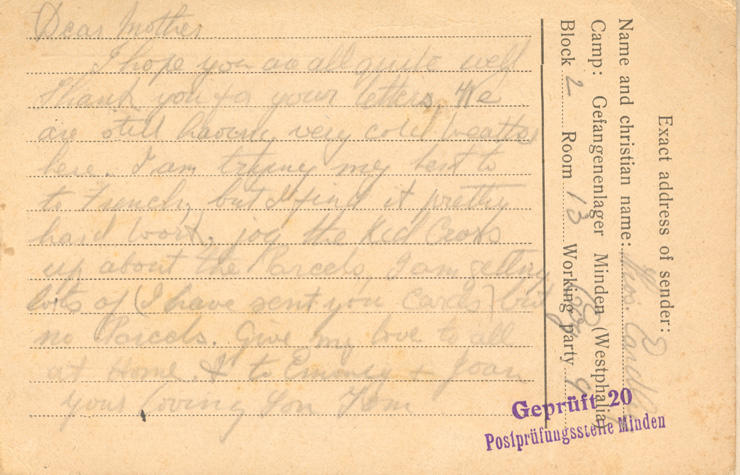 Dear Mother
I hope you are all quite well
Thank you for your letters, We
are still having very cold weather
here. I am trying my best to
to French, but I find it pretty
hard work, jog the Red Cross
up about the Parcels, I am getting
lots of (I have sent you Cards) but
no Parcels. Give my love to all
at Home. & to + Joan
your loving Son Tom
Exact address of sender:
Name and christian name: Thos.
Camp: Gefangenenlager Minden (Westphalia)
Block 2 Room 13 Working party
Geprüft 20
Postprüfungsstelle Minden